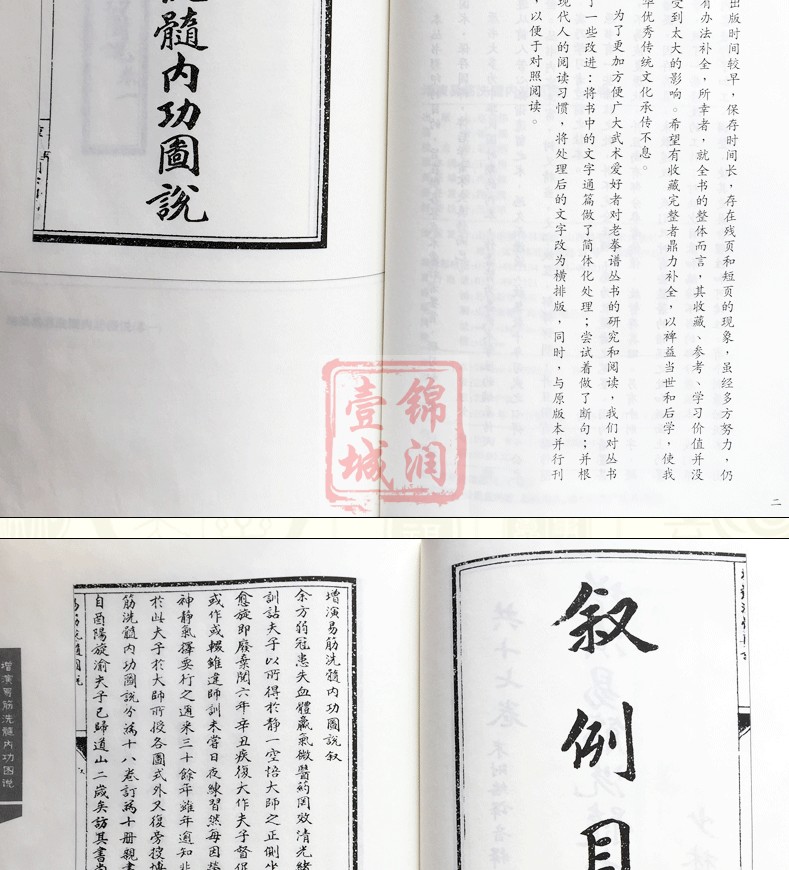 髓内功圖說
出版时间较早，保存时间长，存在残页和短页的现象，虽经多方努力，仍
有办法补全，所幸者，就全书的整体而言，其收藏、参考、学习价值并没
受到太大的影响。希望有收藏完整者鼎力补全，以裨益当世和后学，使我
华优秀传统文化承传不息。
为了更加方便广大武术爱好者对老拳谱丛书的研究和阅读，我们对丛书
了一些改进：将书中的文字通篇做了简体化处理；尝试着做了断句；并根
现代人的阅读习惯，将处理后的文字改为横排版，同时，与原版本并行刊
，以便于对照阅读。
二
锦润
壹城
叙例目
增演易筋洗髓内功圖說叙
余方弱冠患失血體羸氣微醫葯罔效清光緒
訓詁夫子以所得於静一空悟大師之正側坐
愈旋即廢棄閱六年辛丑疾復大作夫子督促
或作或輟雖違師訓未嘗日夜練習然每因禁
神靜氣擇要行之適来三十餘年雖年逾知非
於此夫子於大師所授各圖式外又復旁授博
筋洗髓内功圖說分為十八卷訂為十册親書
自酉陽旋渝夫子已歸道山二歲矣訪其書尚
筋洗髓圖說
增演易筋洗髓内功图说